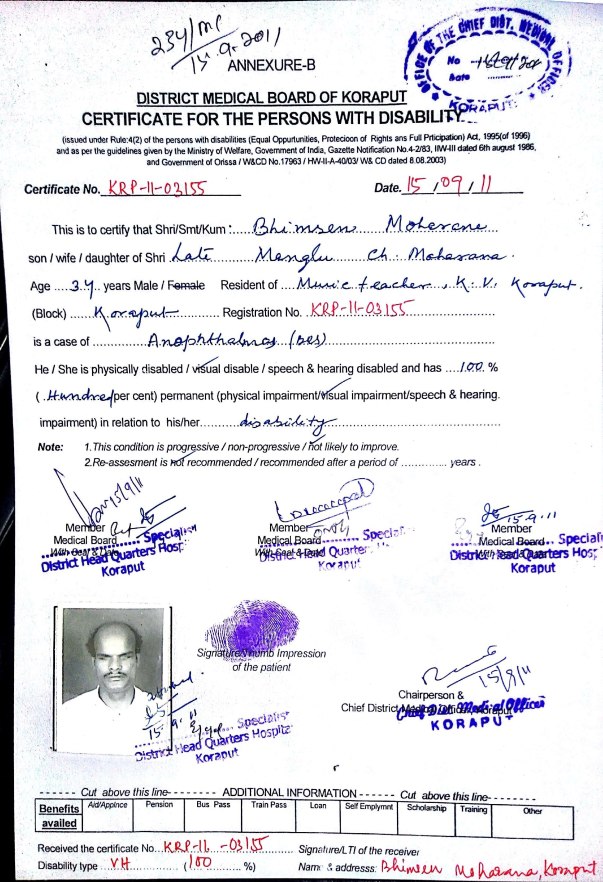 234/MP
15.9.2011
OFFICE OF THE CHIEF DIST. MEDICAL OFFICER
No
Date
KORAPUT
ANNEXURE-B
DISTRICT MEDICAL BOARD OF KORAPUT
CERTIFICATE FOR THE PERSONS WITH DISABILITY
(issued under Rule:4(2) of the persons with disabilities (Equal Oppurtunities, Protecioon of Rights ans Full Prticipation) Act, 1995(of 1996)
and as per the guidelines given by the Ministry of Welfare, Government of India, Gazette Notification No.4-2/83, IIW-III dated 6th august 1986,
and Government of Orissa / W&CD No.17963 / HW-II-A-40/03/ W& CD dated 8.08.2003)
Certificate No. KRP-11-03155 Date. 15/09/11
This is to certify that Shri/Smt/Kum : Bhimsen Moharana
son / wife / daughter of Shri Late Manglu Ch. Moharana.
Age 34 years Male / Female Resident of Music teacher, K.V. Koraput.
(Block) Koraput Registration No. KRP-11-03155
is a case of Anophthalmos (BES)
He / She is physically disabled / visual disable / speech & hearing disabled and has 100 %
(Hundred per cent) permanent (physical impairment/visual impairment/speech & hearing.
impairment) in relation to his/her disability
Note: 1.This condition is progressive / non-progressive / not likely to improve.
2.Re-assesment is not recommended / recommended after a period of ............. years .
15/9/11
15.9.11
Member Member Member
Medical Board Medical Board Medical Board
With Seal & Date With Seal & Date With Seal & Date
Specialist Specialist Specialist
District Head Quarters Hospital District Head Quarters Hospital District Head Quarters Hospital
Koraput Koraput Koraput
Signature/Thumb Impression
of the patient
15.9.11
Specialist
District Head Quarters Hospital
Koraput
15/9/11
Chairperson &
Chief District Medical Officer, Koraput
Chief Dist. Medical Officer
KORAPUT
Cut above this line ADDITIONAL INFORMATION Cut above this line
Benefits availed Aid/Appince Pension Bus Pass Train Pass Loan Self Emplymnt Scholarship Training Other
Received the certificate No. KRP-11-03155 Signeture/LTI of the receiver
Disability type VH (100 %) Name & addresss: Bhimsen Moharana, Koraput